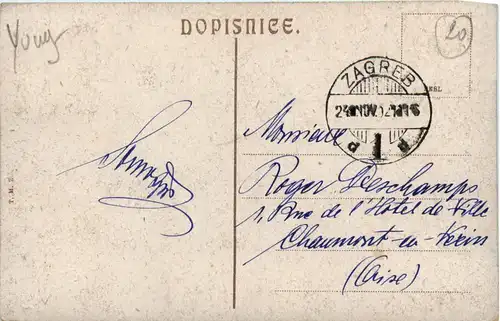 Youg
DOPISNICE.
20
ZAGREB
P 1 P
Monsieur
Roger Deschamps
1, Rue de l'Hôtel de Ville
Chaumont-en-Vexin
(Oise)